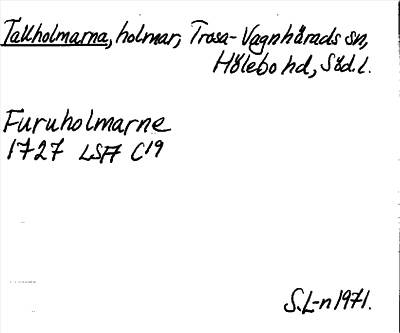 Tallholmarna, holmar, Trosa-Vagnhärads sn,
Hölebo hd, Söd. l.
Furuholmarne
1727 LSA C19
S. L-n 1971.